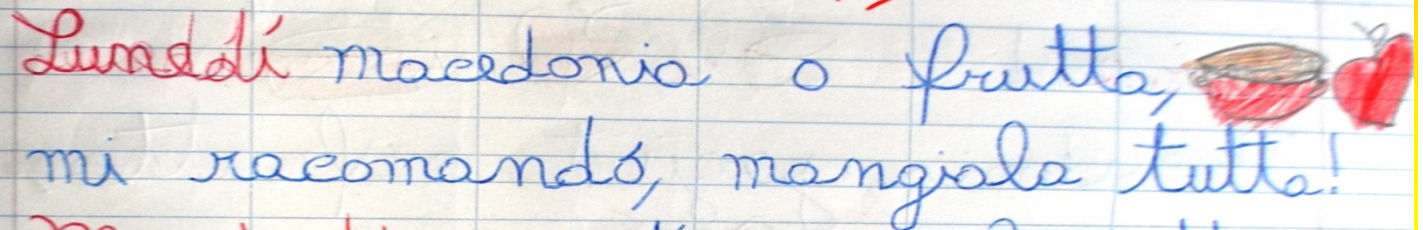 Luneddí macedonia o frutta,
mi racomandó, mangiala tutta!